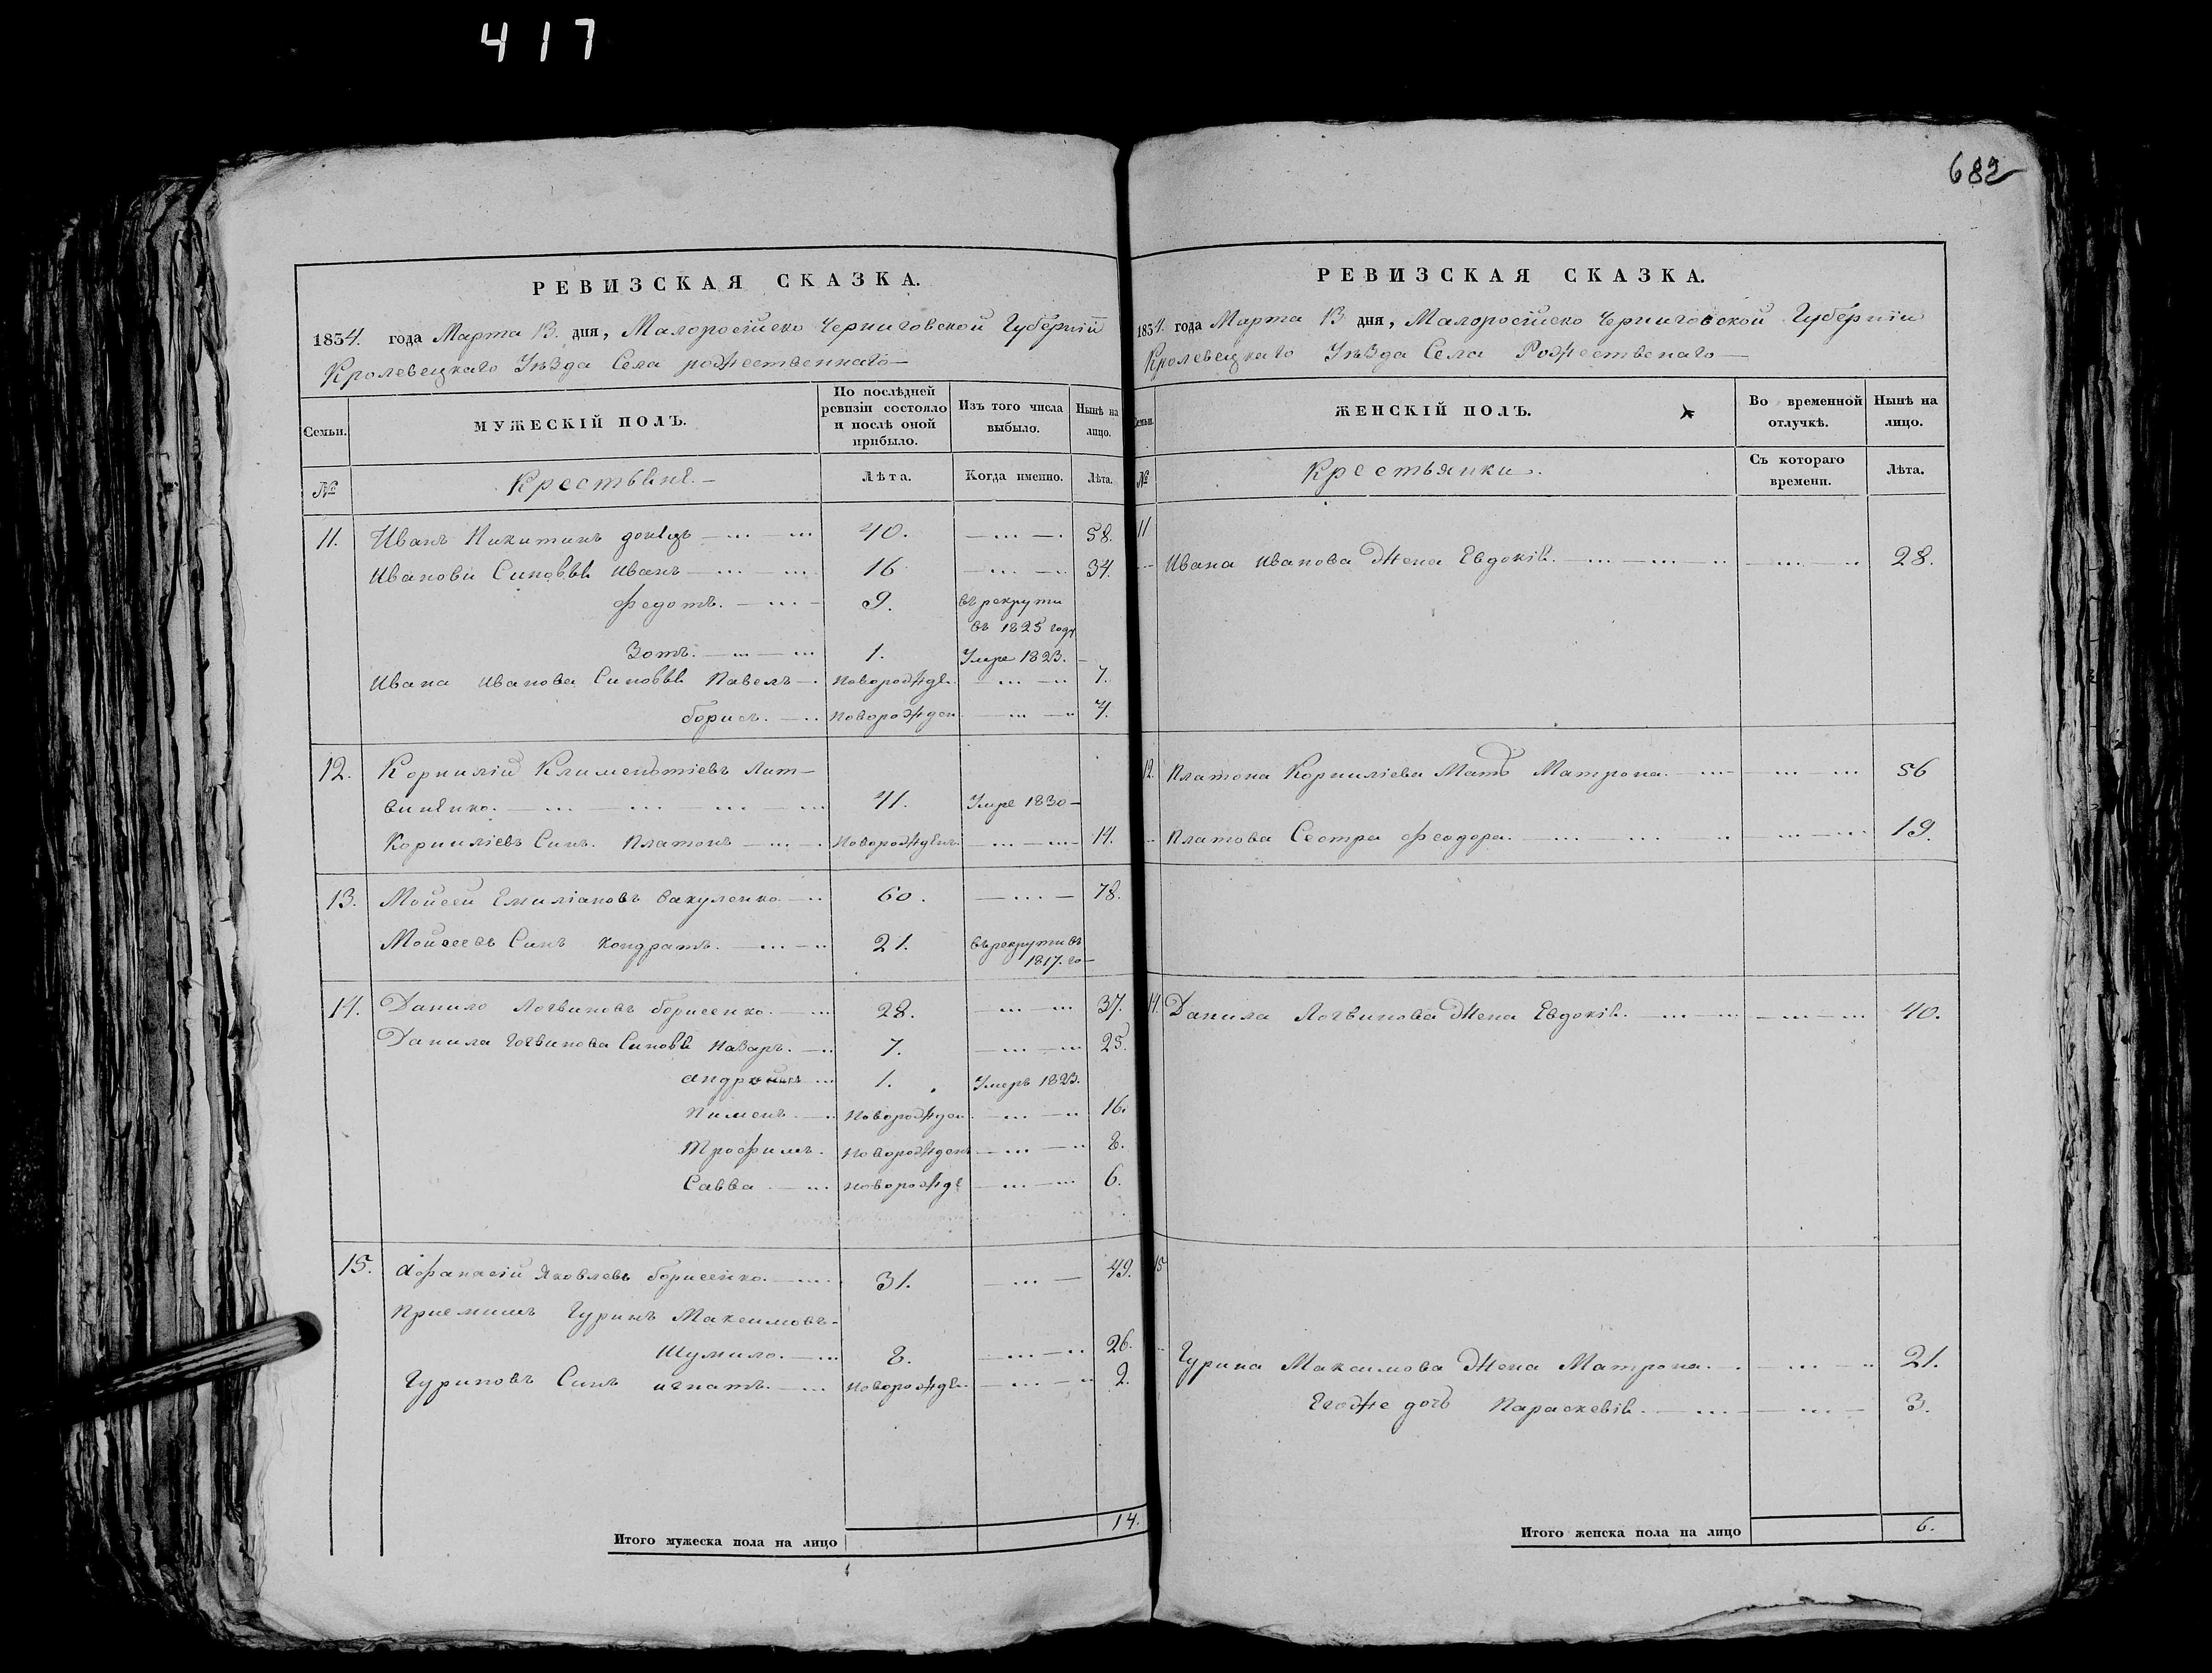 417
682
РЕВИЗСКАЯ СКАЗКА.
1834. года Марта 13. дня, Малоросійско Черниговской Губерніи
Кролевецкаго Уѣзда Села рождественнаго
Семьи.
МУЖЕСКІЙ ПОЛЪ.
По послѣдней ревизіи состояло и послѣ оной прибыло.
Изъ того числа выбыло.
Нынѣ на лицо.
№
Крестьяне.
Лѣта.
Когда именно.
Лѣта.
11. Иванъ Никитинъ 40. 58.
Иванови Синовья Иванъ 16 34.
федотъ. 9. въ рекрути
въ 1825 году
Зотъ. 1. Умре 1823.
Ивана Иванова Синовья Павелъ новорожде. 7.
борисъ. новорожден 4.
12. Корнилій Климентіевъ Лит-
виненко. 41. Умре 1830
Корниліевъ Синъ. Платонъ новорожденъ 14.
13. Мойсей Емиліановъ Вакуленко 60. 78.
Мойсеевъ Синъ Кондратъ. 21. въ рекрути въ
1817. го
14. Данило Логвиновъ борисенко. 28. 37.
Данила Логвинова Синовя Назаръ. 7. 25.
андрей 1. Умеръ 1823.
Пименъ новорожден 16.
Трофимъ. новорожденъ 8.
Савва новорожде 6.
15. Афанасій Яковлевъ борисенко. 31. 49.
Приемишъ Гуринъ Максимовъ
Шумило. 8. 26.
Гуриновъ Синъ игнатъ новорожде. 2.
Итого мужеска пола на лицо 14.
РЕВИЗСКАЯ СКАЗКА.
1834. года Марта 13 дня, Малоросійско Черниговской Губерніи
Кролевецкаго Уѣзда Села Рожественаго
Семьи.
ЖЕНСКІЙ ПОЛЪ.
Во временной отлучкѣ.
Нынѣ на лицо.
№
Крестьянки.
Съ котораго времени.
Лѣта.
11
Ивана Иванова Жена Евдокія. 28.
12. Платона Корниліева Мать Матрона. 56
Платова Сестра Феодора. 19.
14. Данила Логвинова Жена Евдокія. 40.
15
Гурина Максимова Жена Матрона. 21.
Егоже дочь Параскевія. 3.
Итого женска пола на лицо 6.